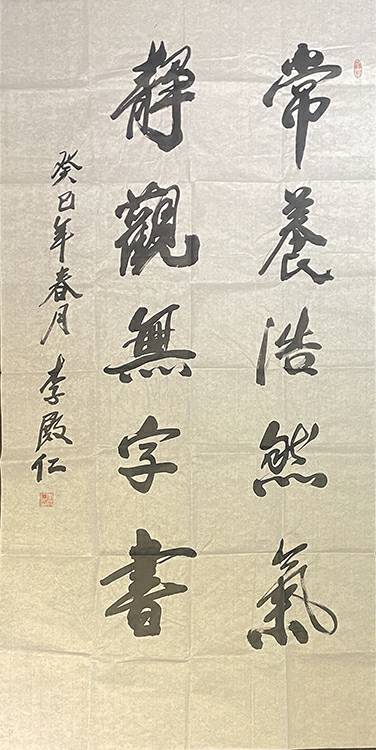 常養浩然氣
靜觀無字書
癸巳年春月 李殿仁